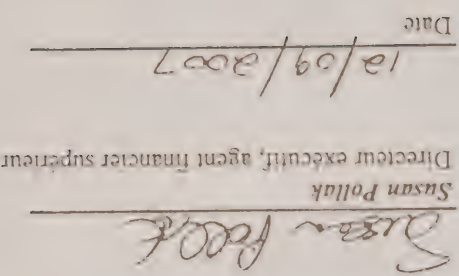 Susan Pollak
Susan Pollak
Directeur exécutif, agent financier supérieur
12/09/2007
Date